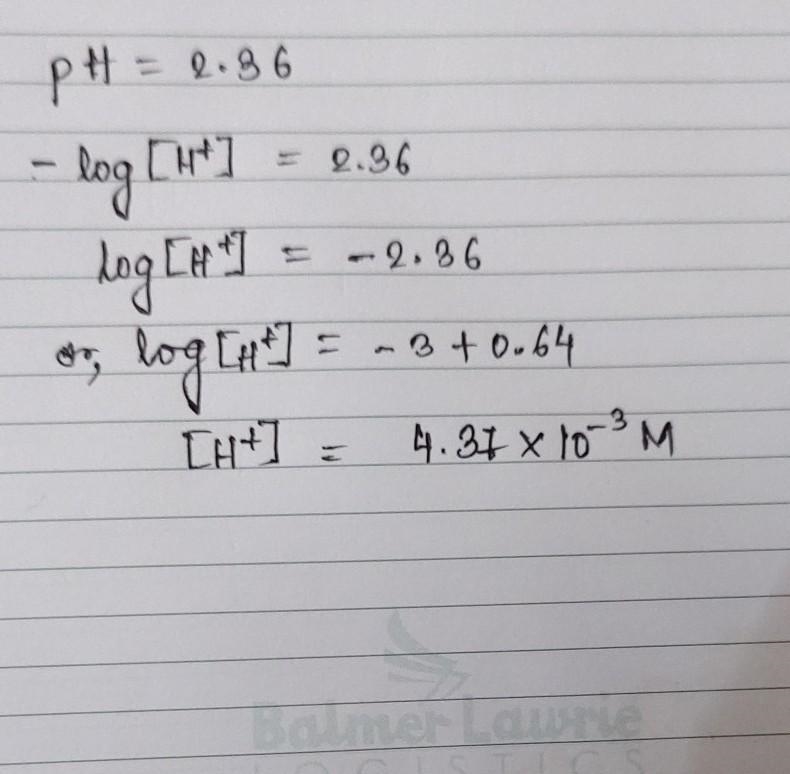 pH = 2.36
- log [H⁺] = 2.36
log [H⁺] = -2.36
or, log [H⁺] = -3 + 0.64
[H⁺] = 4.37 × 10⁻³ M
Balmer Lawrie
LOGISTICS